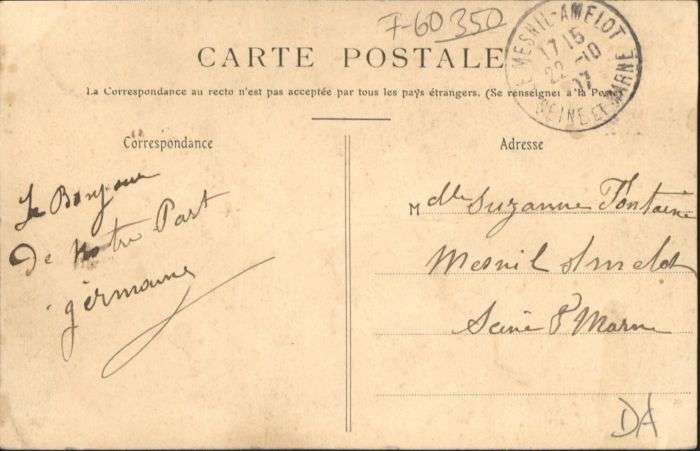 7-60350
LE MESNIL-AMELOT
17 15
22-10
07
SEINE ET MARNE
CARTE POSTALE
La Correspondance au recto n'est pas acceptée par tous les pays étrangers. (Se renseigner à la Poste)
Correspondance
Le Bonjour
de notre Part
germaine
Adresse
Mdlle Suzanne Fontaine
Mesnil Amelot
Seine & Marne
DA